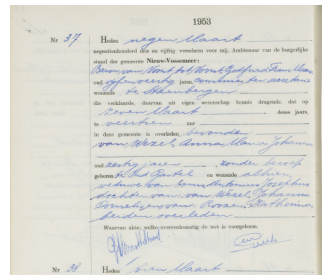 1953
Nr 37 Heden negen Maart
negentienhonderd drie en vijftig verscheen voor mij, Ambtenaar van de burgerlijke
stand der gemeente Nieuw-Vossemeer:
oud vijfenveertig jaren,
wonende te Steenbergen
die verklaarde, daarvan uit eigen wetenschap kennis dragende, dat op
zeven Maart dezes jaars,
te veertien uur
in deze gemeente is overleden bevonden
van Wezel, Anna Maria Johanna
oud zestig jaren, zonder beroep
geboren te Oud Gastel en wonende alhier,
weduwe van Antonius Josephus
dochter van van Wezel, Johannes
Cornelis en van
beiden overleden.
Waarvan akte, welke overeenkomstig de wet is voorgelezen.
Nr 38 Heden tien Maart